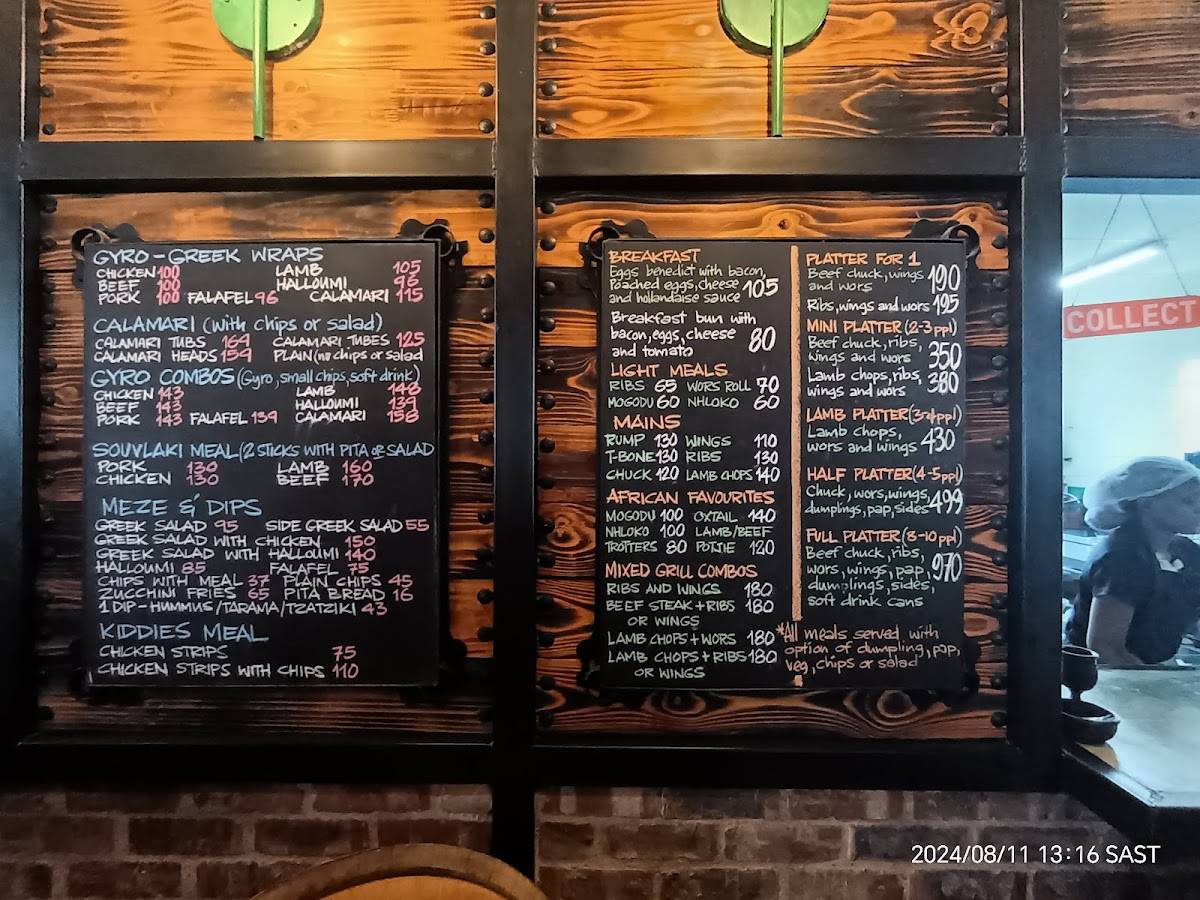 GYRO-GREEK WRAPS
CHICKEN 100 LAMB 105
BEEF 100 HALLOUMI 96
PORK 100 FALAFEL 96 CALAMARI 115
CALAMARI (with chips or salad)
CALAMARI TUBS 164 CALAMARI TUBES 125
CALAMARI HEADS 159 PLAIN (no chips or salad
GYRO COMBOS (Gyro, small chips, soft drink)
CHICKEN 143 LAMB 148
BEEF 143 HALLOUMI 139
PORK 143 FALAFEL 139 CALAMARI 158
SOUVLAKI MEAL (2 STICKS WITH PITA OR SALAD
PORK 130 LAMB 160
CHICKEN 130 BEEF 170
MEZE & DIPS
GREEK SALAD 95 SIDE GREEK SALAD 55
GREEK SALAD WITH CHICKEN 150
GREEK SALAD WITH HALLOUMI 140
HALLOUMI 85 FALAFEL 75
CHIPS WITH MEAL 37 PLAIN CHIPS 45
ZUCCHINI FRIES 65 PITA BREAD 16
1 DIP-HUMMUS/TARAMA/TZATZIKI 43
KIDDIES MEAL
CHICKEN STRIPS 75
CHICKEN STRIPS WITH CHIPS 110
BREAKFAST
Eggs benedict with bacon,
Poached eggs, cheese
and hollandaise sauce 105
Breakfast bun with
bacon, eggs, cheese
and tomato 80
LIGHT MEALS
RIBS 65 WORS ROLL 70
MOGODU 60 NHLOKO 60
MAINS
RUMP 130 WINGS 110
T-BONE 130 RIBS 130
CHUCK 120 LAMB CHOPS 140
AFRICAN FAVOURITES
MOGODU 100 OXTAIL 140
NHLOKO 100 LAMB/BEEF
TROTTERS 80 POTJIE 120
MIXED GRILL COMBOS
RIBS AND WINGS 180
BEEF STEAK + RIBS 180
OR WINGS
LAMB CHOPS + WORS 180
LAMB CHOPS + RIBS 180
OR WINGS
PLATTER FOR 1
Beef chuck, wings
and wors 190
Ribs, wings and wors 195
MINI PLATTER (2-3 ppl)
Beef chuck, ribs,
wings and wors 350
Lamb chops, ribs,
wings and wors 380
LAMB PLATTER ppl)
Lamb chops,
wors and wings 430
HALF PLATTER (4-5 ppl)
Chuck, wors, wings,
dumplings, pap, sides 499
FULL PLATTER (8-10 ppl)
Beef chuck, ribs,
wors, wings, pap, 970
dumplings, sides,
soft drink cans
*All meals served with
option of dumpling, pap,
veg, chips or salad
COLLECT
2024/08/11 13:16 SAST